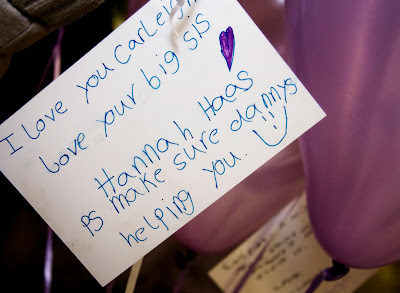 I love you Carleigh
Love your big sis
Hannah Haas
PS make sure dannys
helping you.